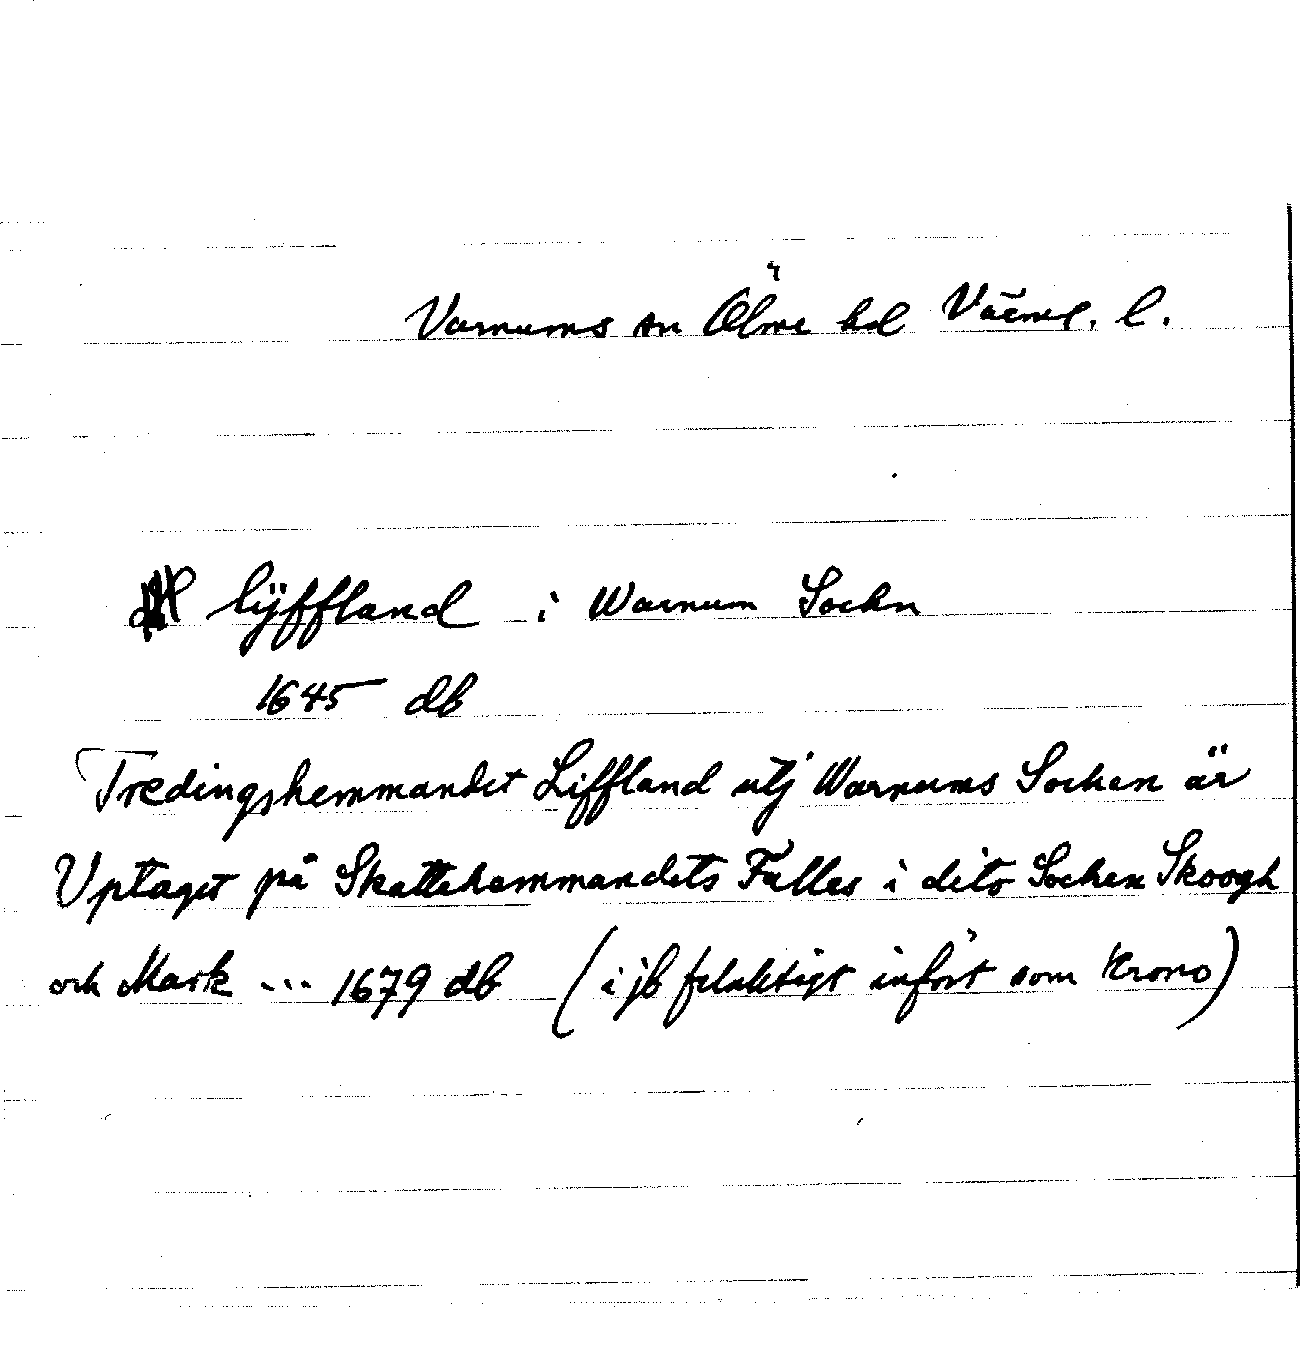 Varnums sn Ölme hd Värml. l.
lÿffland i Warnum Sochn
1645 db
Tredingshemmandet Liffland utj Warnums Sochen är
Uptaget på Skattehemmandets Falles i dito Sochen Skoogh
och Mark ... 1679 db (i jb felaktigt infört som Krono)